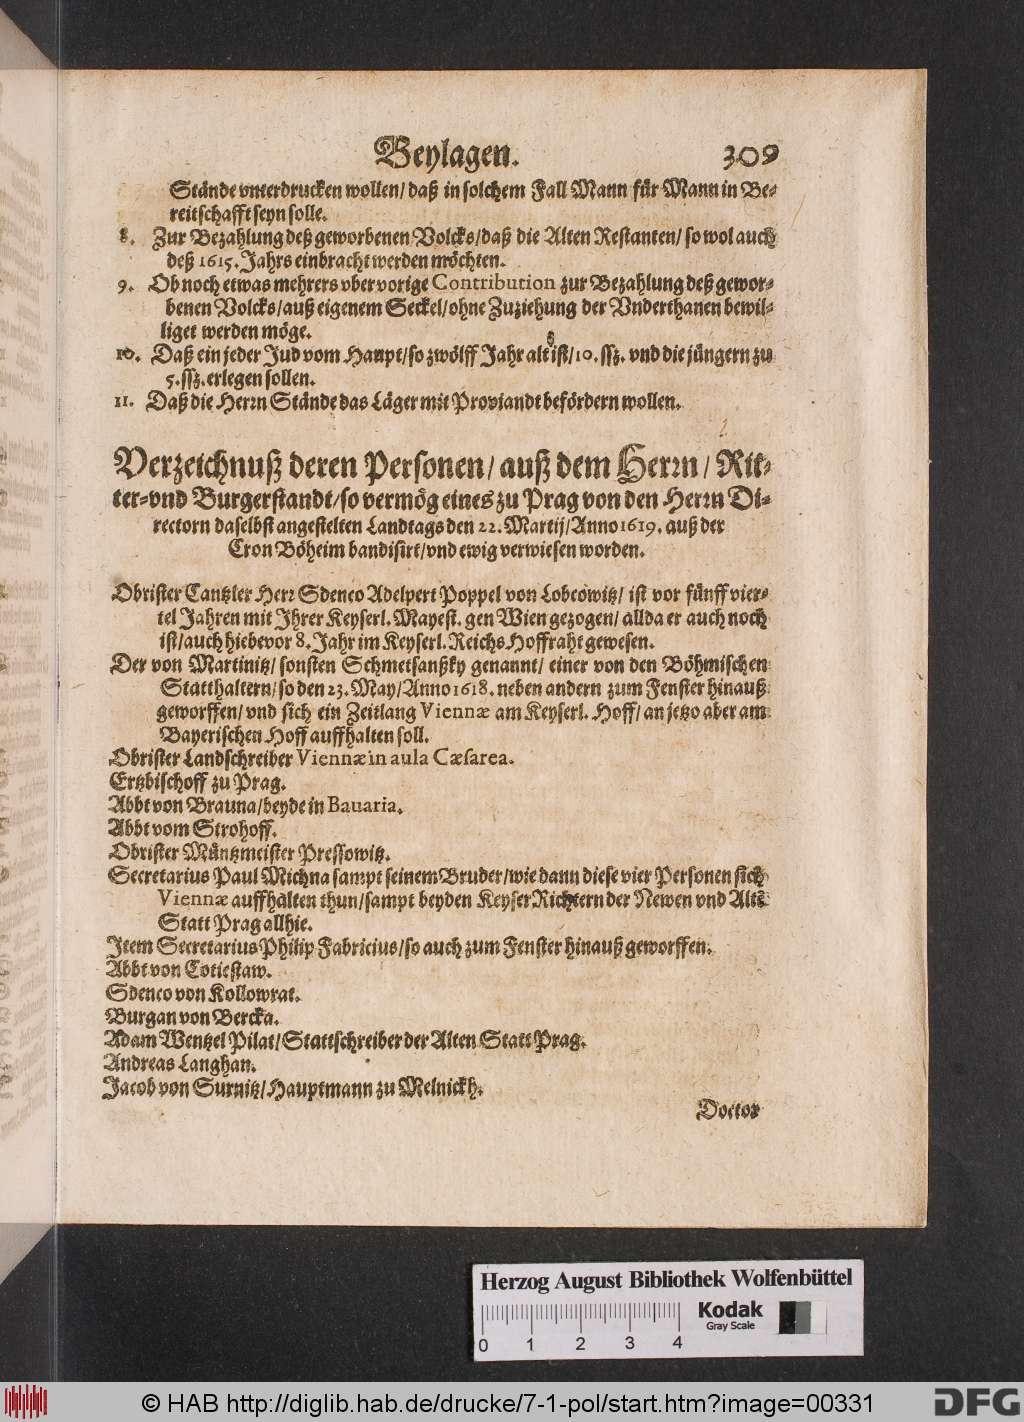 Beylagen. 309
Stände vnterdrucken wollen/ daß in solchem Fall Mann für Mann in Be-
reitschafft seyn solle.
8. Zur Bezahlung deß geworbenen Volcks/ daß die Alten Restanten/ so wol auch
deß 1615. Jahrs einbracht werden möchten.
9. Ob noch etwas mehrers vber vorige Contribution zur Bezahlung deß gewor-
benen Volcks/ auß eigenem Seckel/ ohne Zuziehung der Vnderthanen bewil-
liget werden möge.
10. Daß ein jeder Jud vom Haupt/ so zwölff Jahr alt ist/ 10. ßz. vnd die jüngern zu
5. ßz. erlegen sollen.
11. Daß die Herrn Stände das Läger mit Proviandt befördern wollen.
Verzeichnuß deren Personen/ auß dem Herrn/ Rit-
ter- vnd Burgerstandt/ so vermög eines zu Prag von den Herrn Di-
rectorn daselbst angestelten Landtags den 22. Martij/ Anno 1619. auß der
Cron Böheim bandisirt/ vnd ewig verwiesen worden.
Obrister Cantzler Herr Sdenco Adelpert Poppel von Lobcowitz/ ist vor fünff vier-
tel Jahren mit Ihrer Keyserl. Mayest. gen Wien gezogen/ allda er auch noch
ist/ auch hiebevor 8. Jahr im Keyserl. Reichs Hoffraht gewesen.
Der von Martinitz/ sonsten Schmetsanßky genannt/ einer von den Böhmischen
Statthaltern/ so den 23. May/ Anno 1618. neben andern zum Fenster hinauß
geworffen/ vnd sich ein Zeitlang Viennæ am Keyserl. Hoff/ an jetzo aber am
Bayerischen Hoff auffhalten soll.
Obrister Landschreiber Viennæ in aula Cæsarea.
Ertzbischoff zu Prag.
Abbt von Brauna/ beyde in Bavaria.
Abbt vom Strohoff.
Obrister Müntzmeister Pressowitz.
Secretarius Paul Michna sampt seinem Bruder/ wie dann diese vier Personen sich
Viennæ auffhalten thun/ sampt beyden Keyser Richtern der Newen vnd Alts
Statt Prag allhie.
Item Secretarius Philip Fabricius/ so auch zum Fenster hinauß geworffen.
Abbt von Cotiestaw.
Sdenco von Kollowrat.
Burgan von Bercka.
Adam Wentzel Pilat/ Stattschreiber der Alten Statt Prag.
Andreas Langhan.
Jacob von Surnitz/ Hauptmann zu Melnickh.
Doctor
Herzog August Bibliothek Wolfenbüttel
Kodak
Gray Scale
0 1 2 3 4
© HAB http://diglib.hab.de/drucke/7-1-pol/start.htm?image=00331
DFG